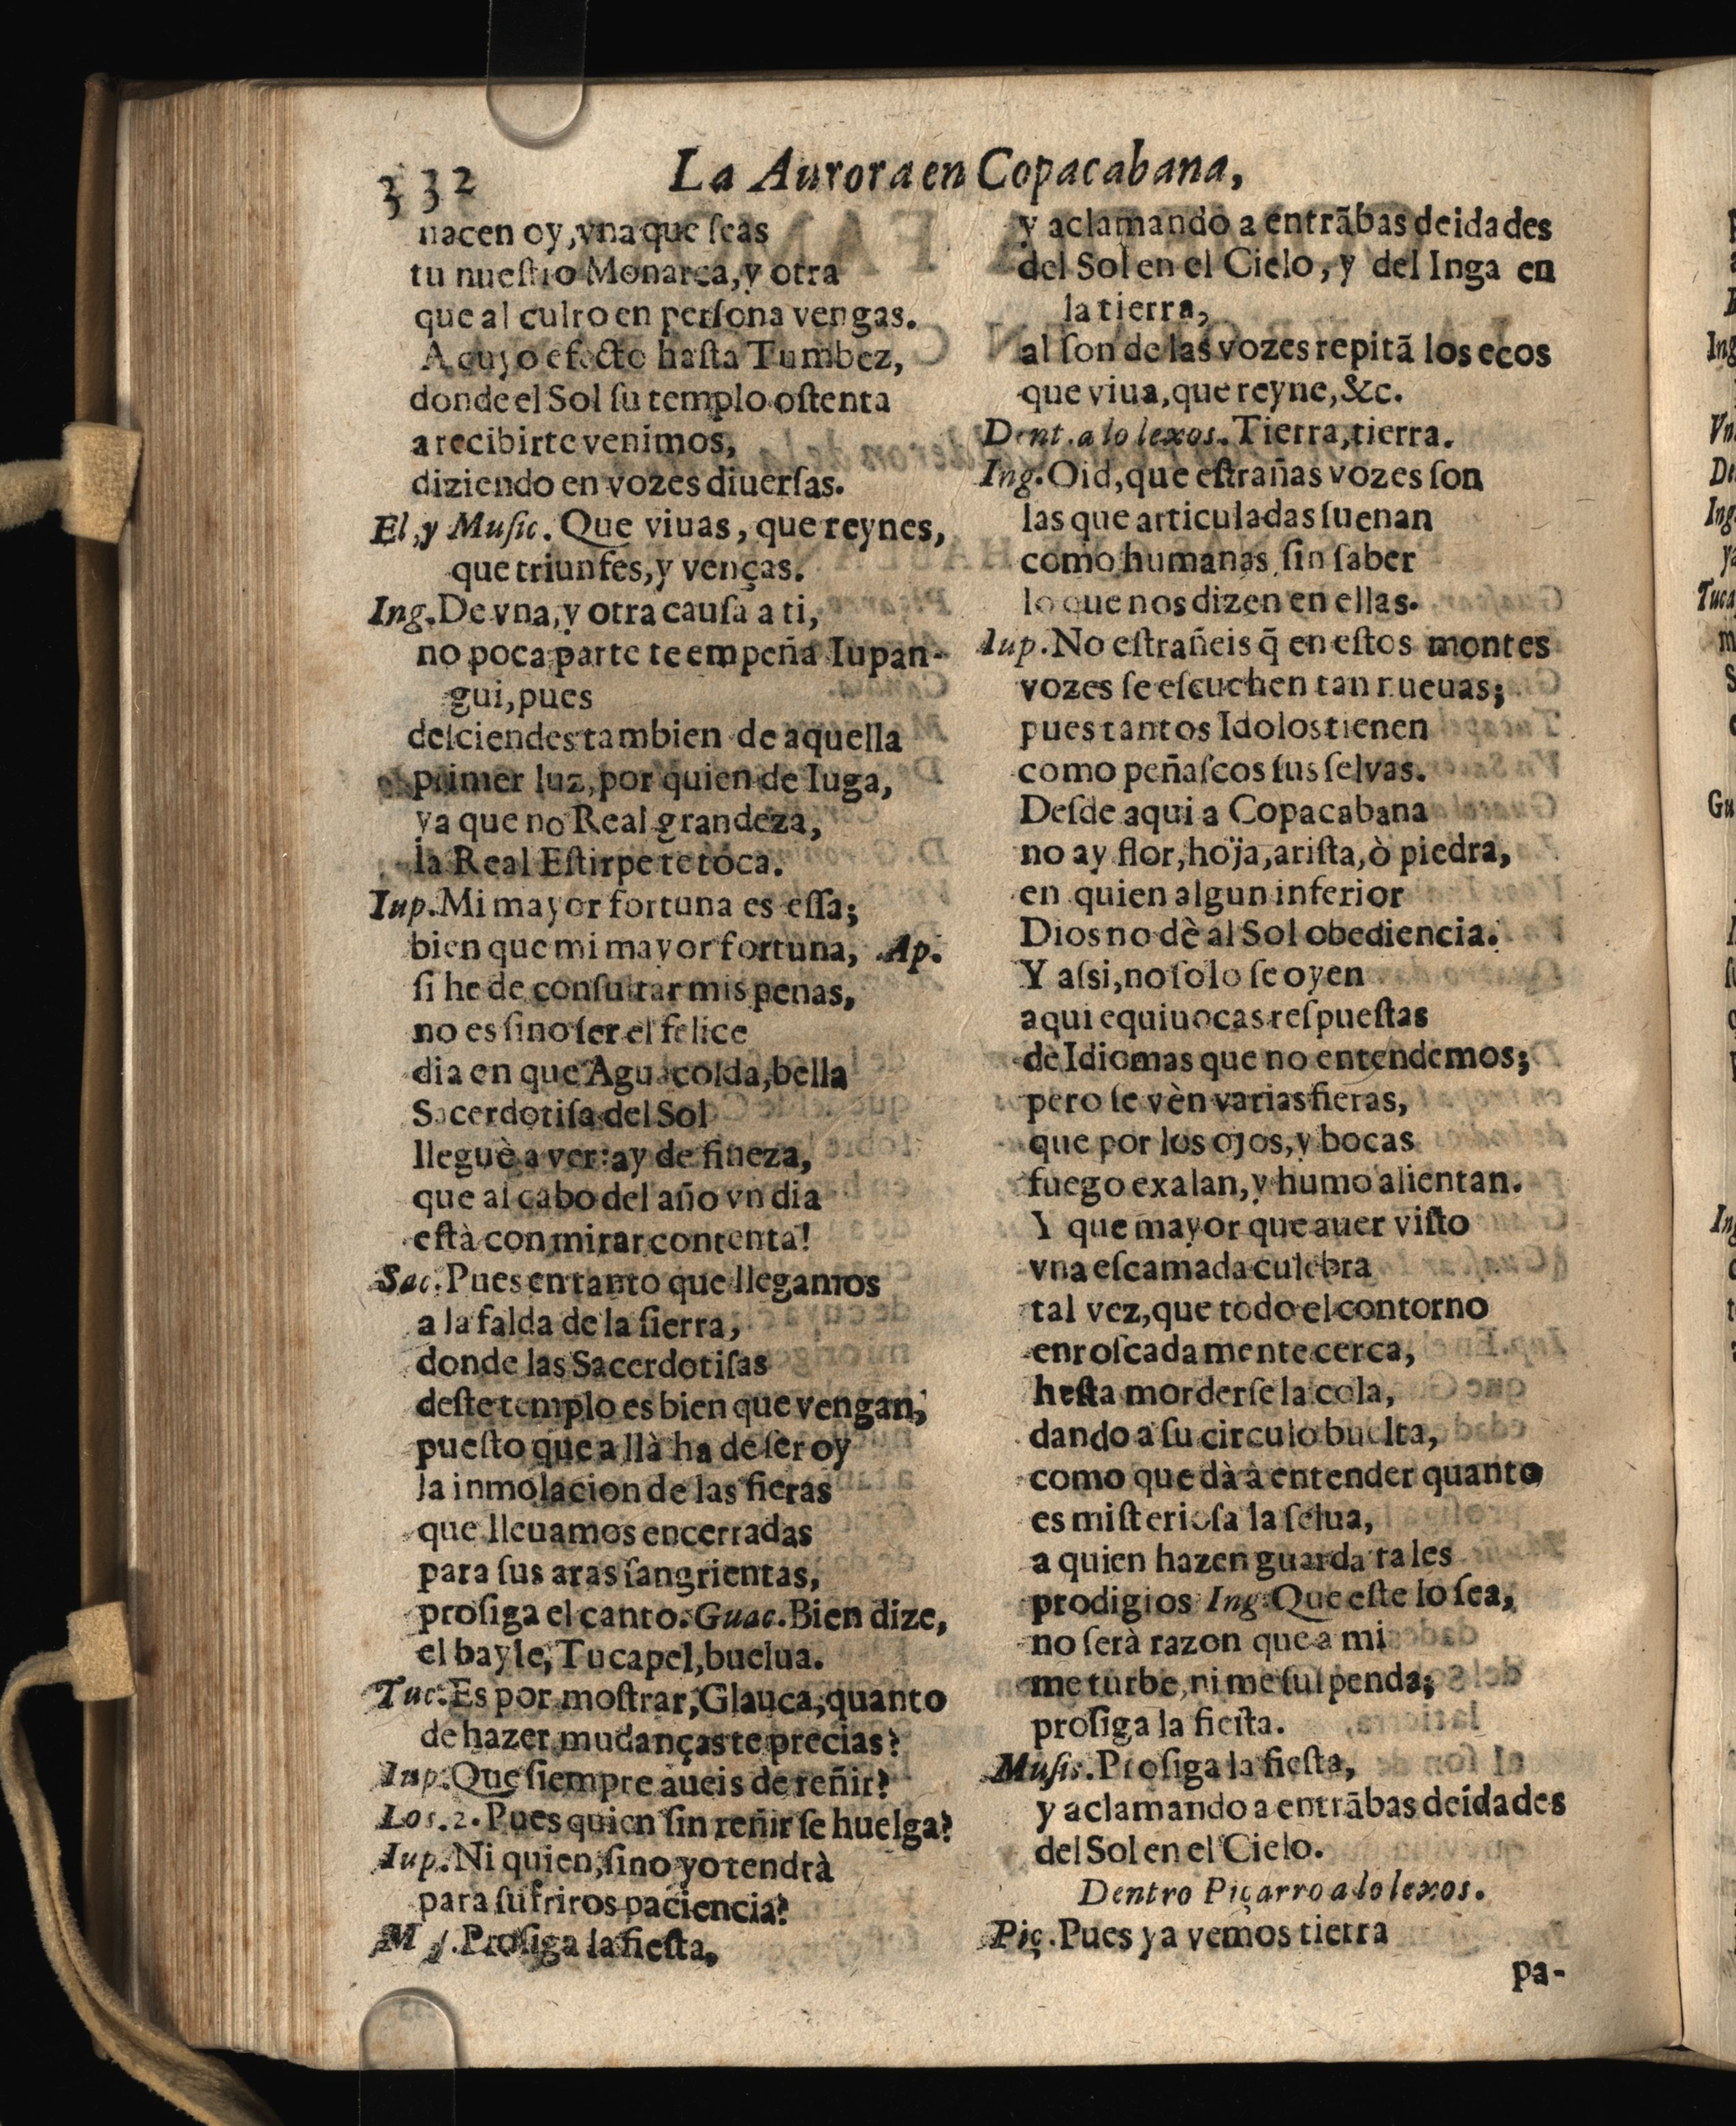 332
La Aurora en Copacabana,
nacen oy, vna que ſeas
tu nueſtro Monarca, y otra
que al culto en perſona vengas.
A cuyo efecto haſta Tumbez,
donde el Sol ſu templo oſtenta
a recibirte venimos,
diziendo en vozes diuerſas.
El, y Muſic. Que viuas, que reynes,
que triunfes, y venças.
Ing. De vna, y otra cauſa a ti,
no poca parte te empeña Iupan-
gui, pues
deſciendes tambien de aquella
primer luz, por quien de Iuga,
ya que no Real grandeza,
la Real Eſtirpe te toca.
Iup. Mi mayor fortuna es eſſa;
bien que mi mayor fortuna, Ap.
ſi he de conſultar mis penas,
no es ſino ſer el felice
dia en que Aguacolda, bella
Sacerdotiſa del Sol
lleguè a ver: ay de fineza,
que al cabo del año vn dia
eſtà con mirar contenta!
Sac. Pues en tanto que llegamos
a la falda de la ſierra,
donde las Sacerdotiſas
deſte templo es bien que vengan,
pueſto que allà ha de ſer oy
la inmolacion de las fieras
que lleuamos encerradas
para ſus aras ſangrientas,
proſiga el canto. Guac. Bien dize,
el bayle, Tucapel, buelua.
Tuc. Es por moſtrar, Glauca, quanto
de hazer mudanças te precias?
Iup. Que ſiempre aueis de reñir?
Los. 2. Pues quien ſin reñir ſe huelga?
Iup. Ni quien, ſino yo tendrà
para ſufriros paciencia?
M ſ. Proſiga la fieſta,
y aclamando a entrãbas deidades
del Sol en el Cielo, y del Inga en
la tierra,
al ſon de las vozes repitã los ecos
que viua, que reyne, &c.
Dent. a lo lexos. Tierra, tierra.
Ing. Oid, que eſtrañas vozes ſon
las que articuladas ſuenan
como humanas ſin ſaber
lo que nos dizen en ellas.
Iup. No eſtrañeis q̃ en eſtos montes
vozes ſe eſcuchen tan nueuas;
pues tantos Idolos tienen
como peñaſcos ſus ſelvas.
Deſde aqui a Copacabana
no ay flor, hoja, ariſta, ò piedra,
en quien algun inferior
Dios no dè al Sol obediencia.
Y aſsi, no ſolo ſe oyen
aqui equiuocas reſpueſtas
de Idiomas que no entendemos;
pero ſe vèn varias fieras,
que por los ojos, y bocas
fuego exalan, y humo alientan.
Y que mayor que auer viſto
vna eſcamada culebra
tal vez, que todo el contorno
enroſcadamente cerca,
heſta morderſe la cola,
dando a ſu circulo buelta,
como que dà à entender quanto
es miſterioſa la ſelua,
a quien hazen guarda tales
prodigios Ing. Que eſte lo ſea,
no ſerà razon que a mi
me turbe, ni me ſuſpenda;
proſiga la fieſta.
Muſic. Proſiga la fieſta,
y aclamando a entrãbas deidades
del Sol en el Cielo.
Dentro Piçarro a lo lexos.
Piç. Pues ya vemos tierra
pa-